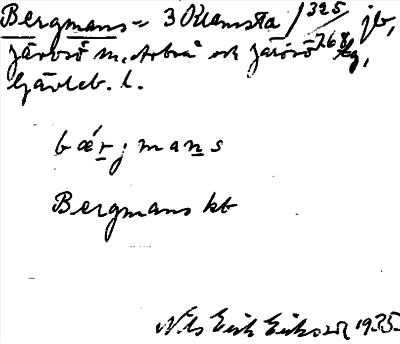 Bergmans = 3 Kramsta 1325 jb,
Järvsö m, Arbrå och Järvsö tg,
Gävleb. l.
bǽrjmans
Bergmans kb
Nils Erik Eriksson 1935